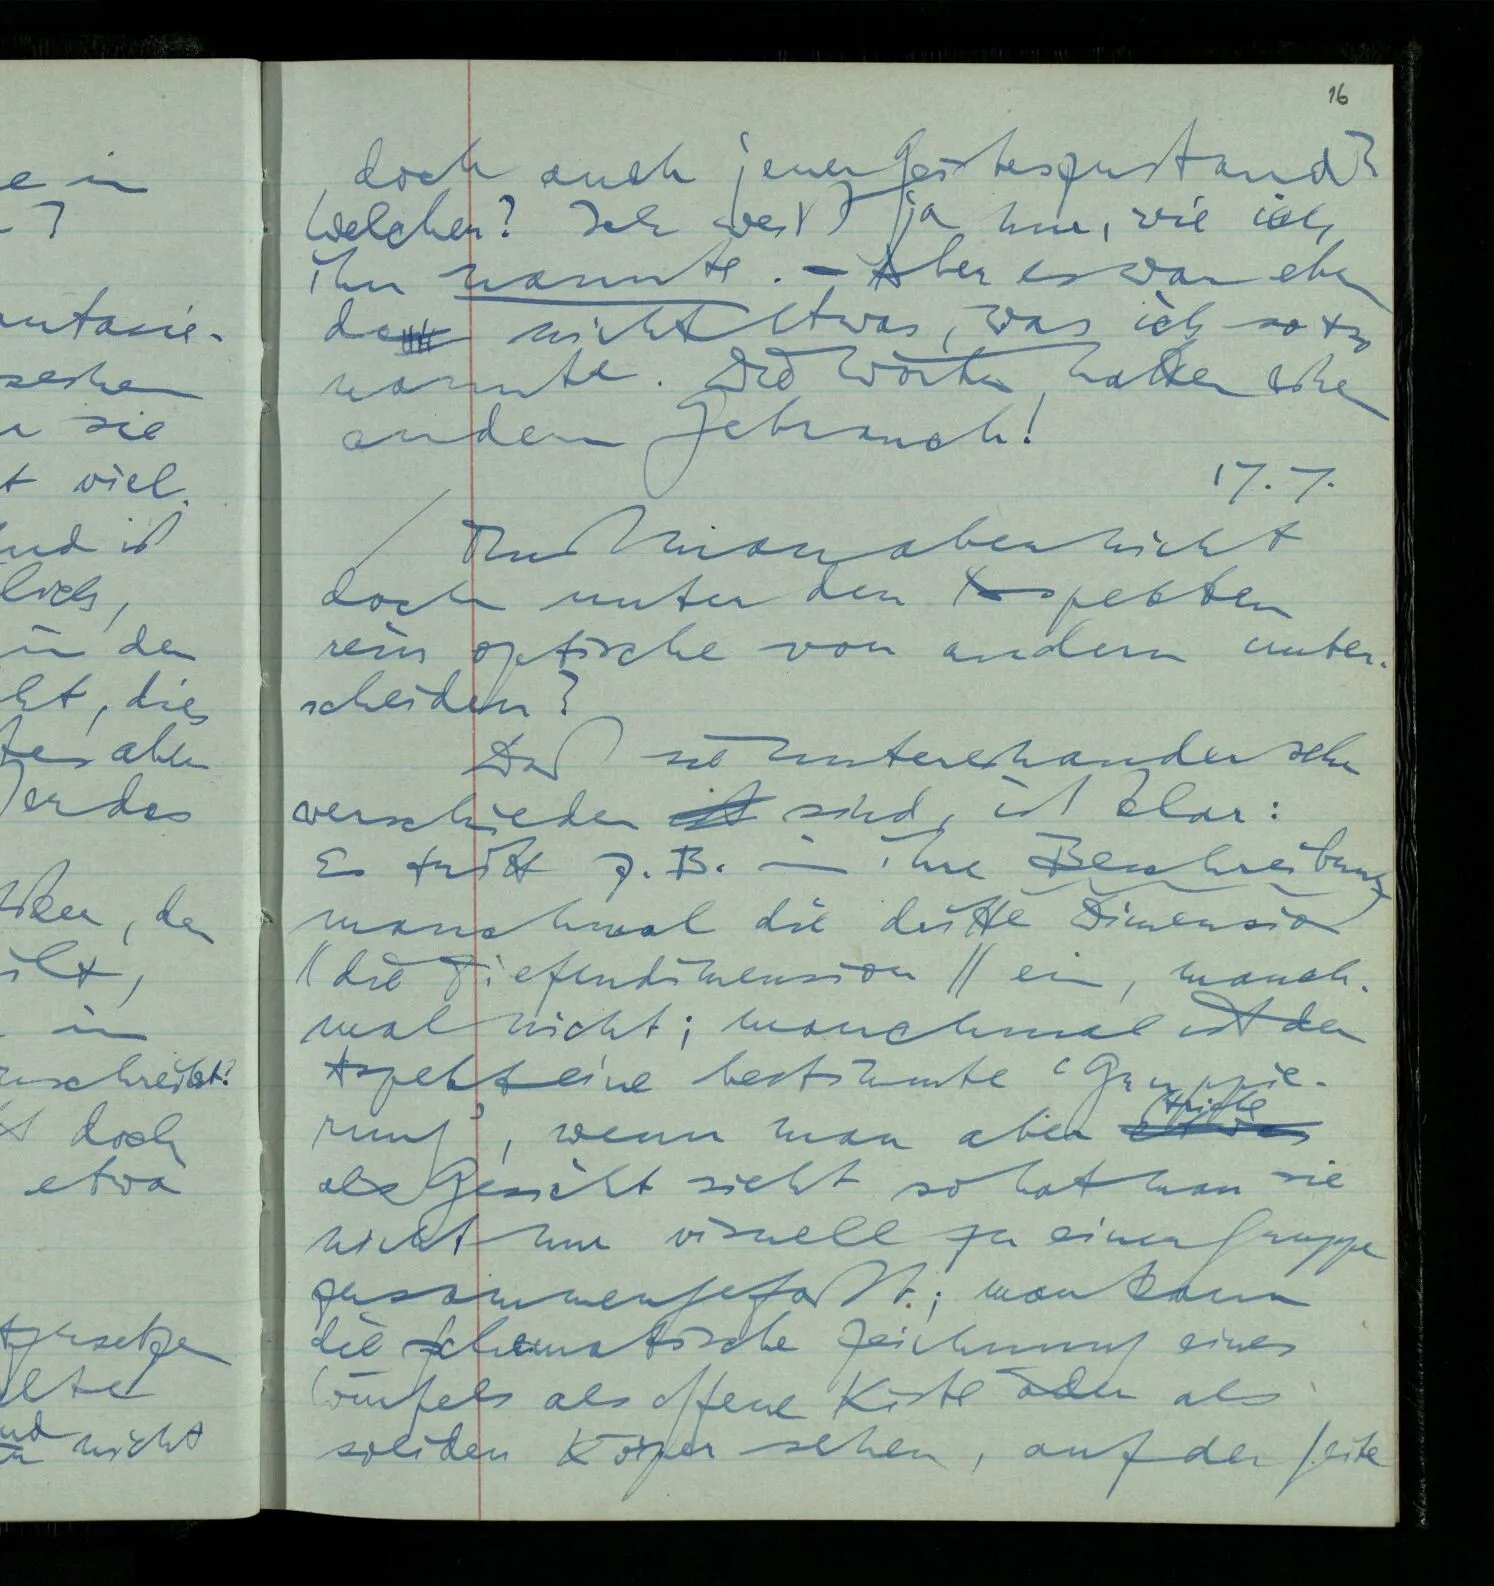 e in
?
antasie-
sehen
sie
t viel.
und ist
lich,
in den
cht, dies
aber
den, der
ilt,
in
nschreibt?
doch
etwa
lte
und
nicht
16
doch auch jener Geisteszustand?
Welcher? Ich weiß ja nur, wie ich
ihn nannte. – Aber es war eben
nicht Etwas, was ich so
nannte. Die Worte hatten
andern Gebrauch!
17.7.
/ Muß man aber nicht
doch unter den Aspekten
rein optische von andern unter-
scheiden?
Daß sie untereinander sehr
verschieden ist sind, ist klar:
Es tritt z.B. in ihre Beschreibung
manchmal die dritte Dimension
// die Tiefendimension // ein, manch-
mal nicht; manchmal ist der
Aspekt eine bestimmte 'Gruppie-
rung', wenn man aber etwas Striche
als Gesicht sieht so hat man sie
nicht nur visuell zu einer Gruppe
zusammengefaßt; man kann
die schematische Zeichnung eines
Würfels als offene Kiste oder als
soliden Körper sehen, auf der Seite